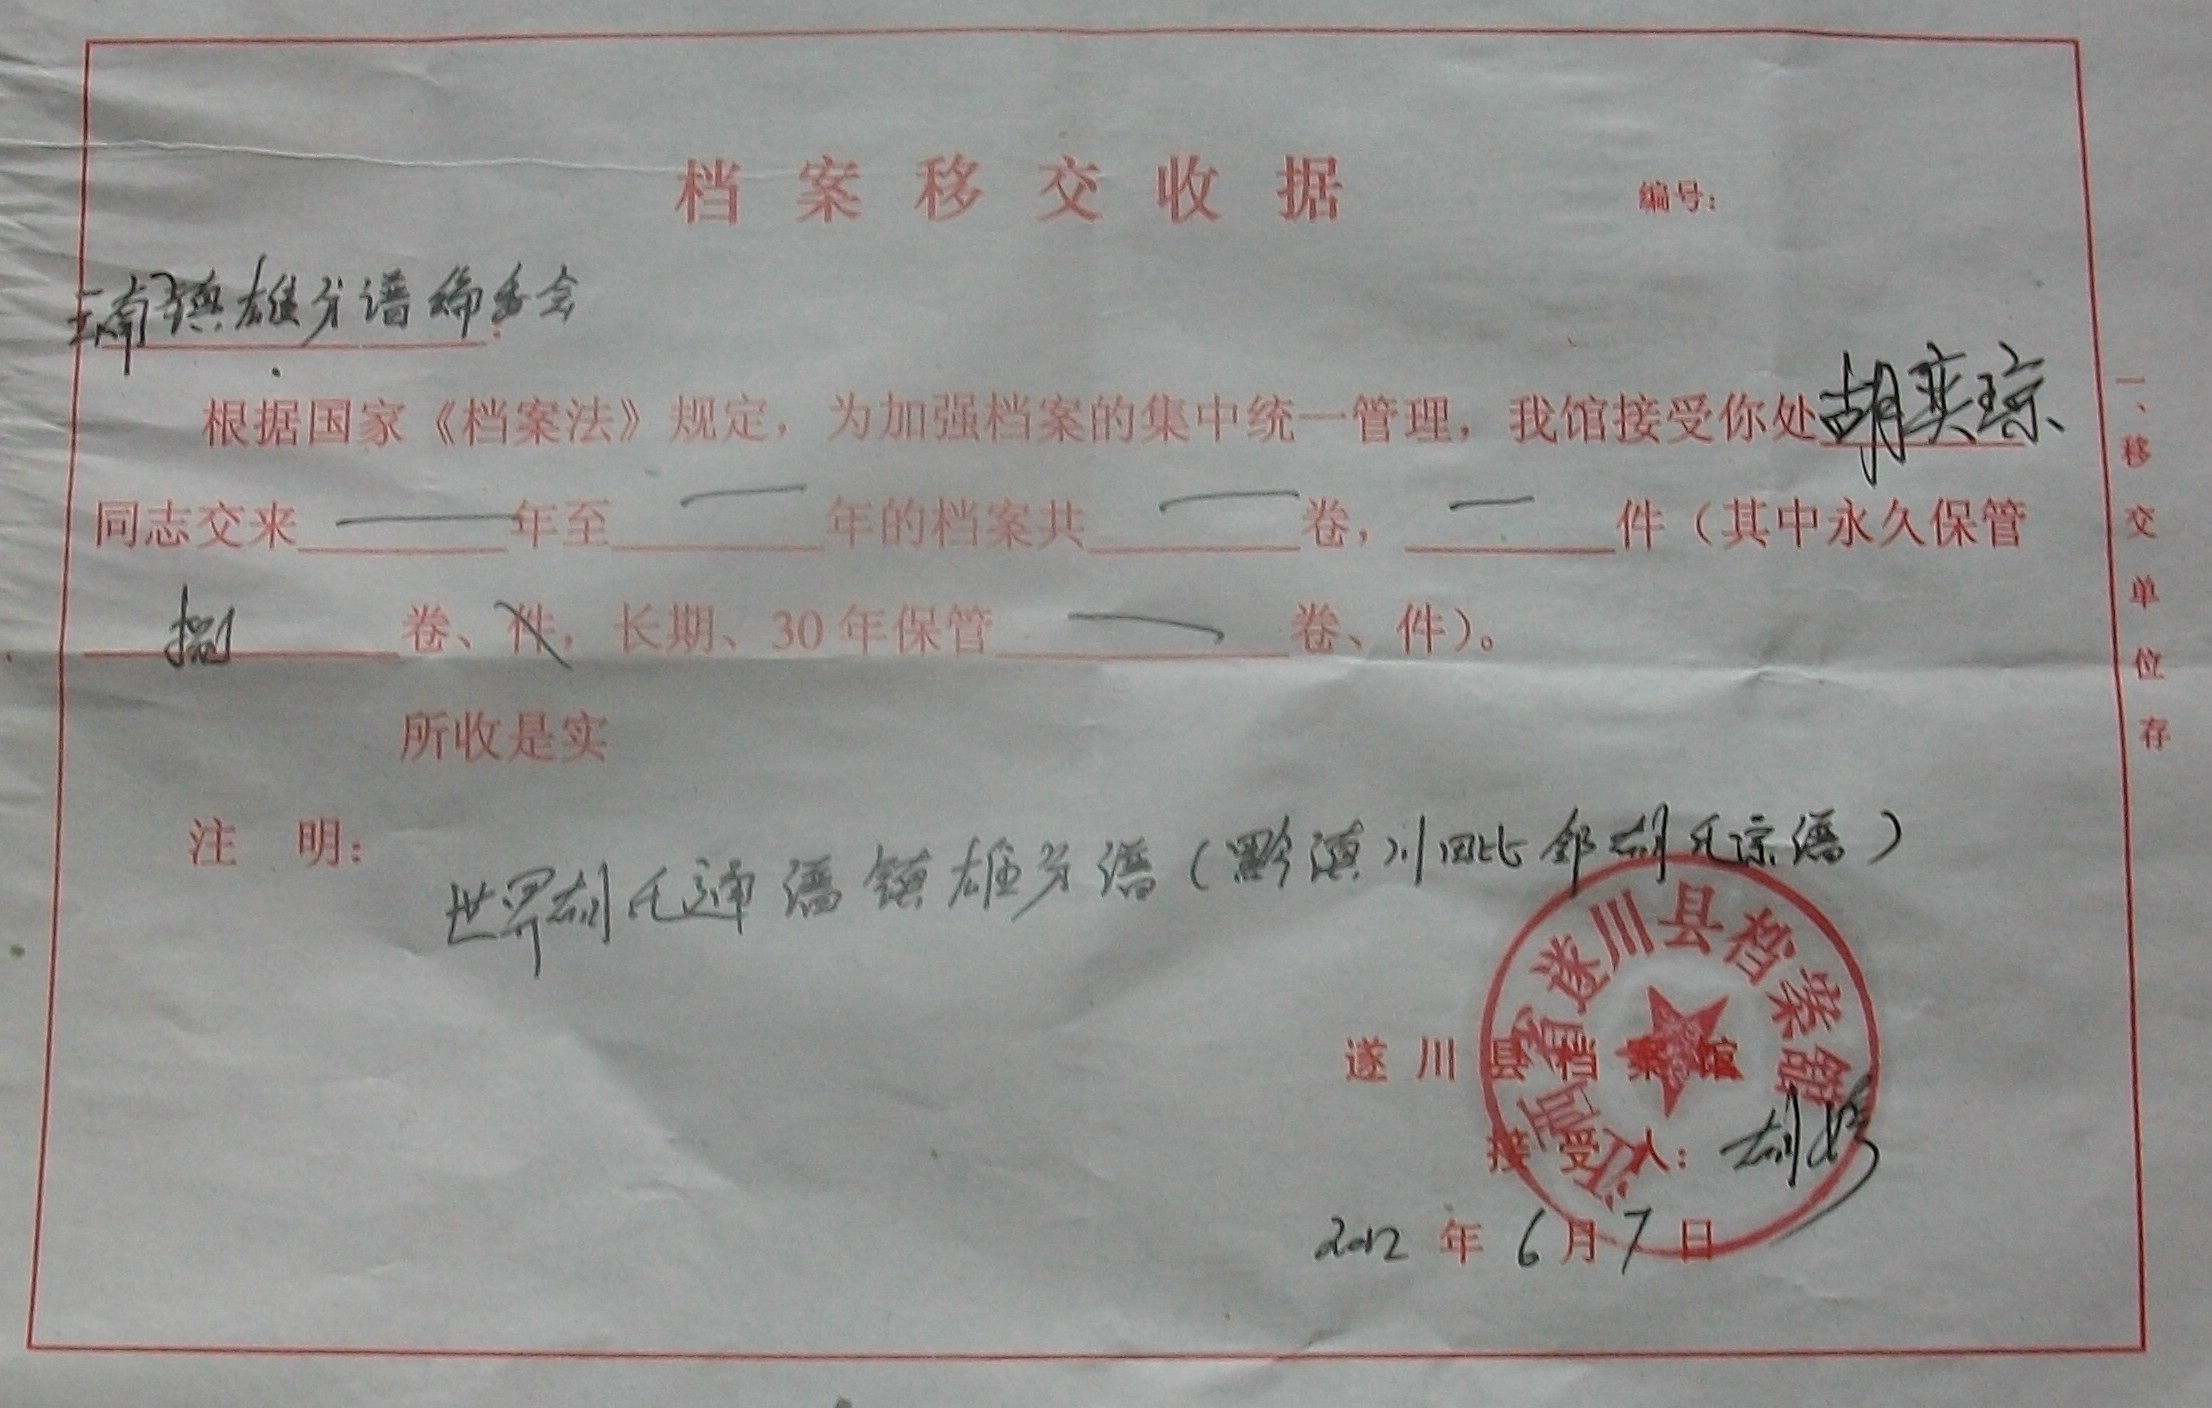 档案移交收据
编号：
云南镇雄分谱编委会：
根据国家《档案法》规定，为加强档案的集中统一管理，我馆接受你处胡奕琼
同志交来 — 年至 — 年的档案共 — 卷， — 件（其中永久保管
捌 卷、件，长期、30年保管 — 卷、件）。
所收是实
注 明：
世界胡氏通谱镇雄分谱（黔滇川毗邻胡氏宗谱）
遂川县档案馆
接受人：胡
2012年6月7日
江西省遂川县档案馆
一、移交单位存